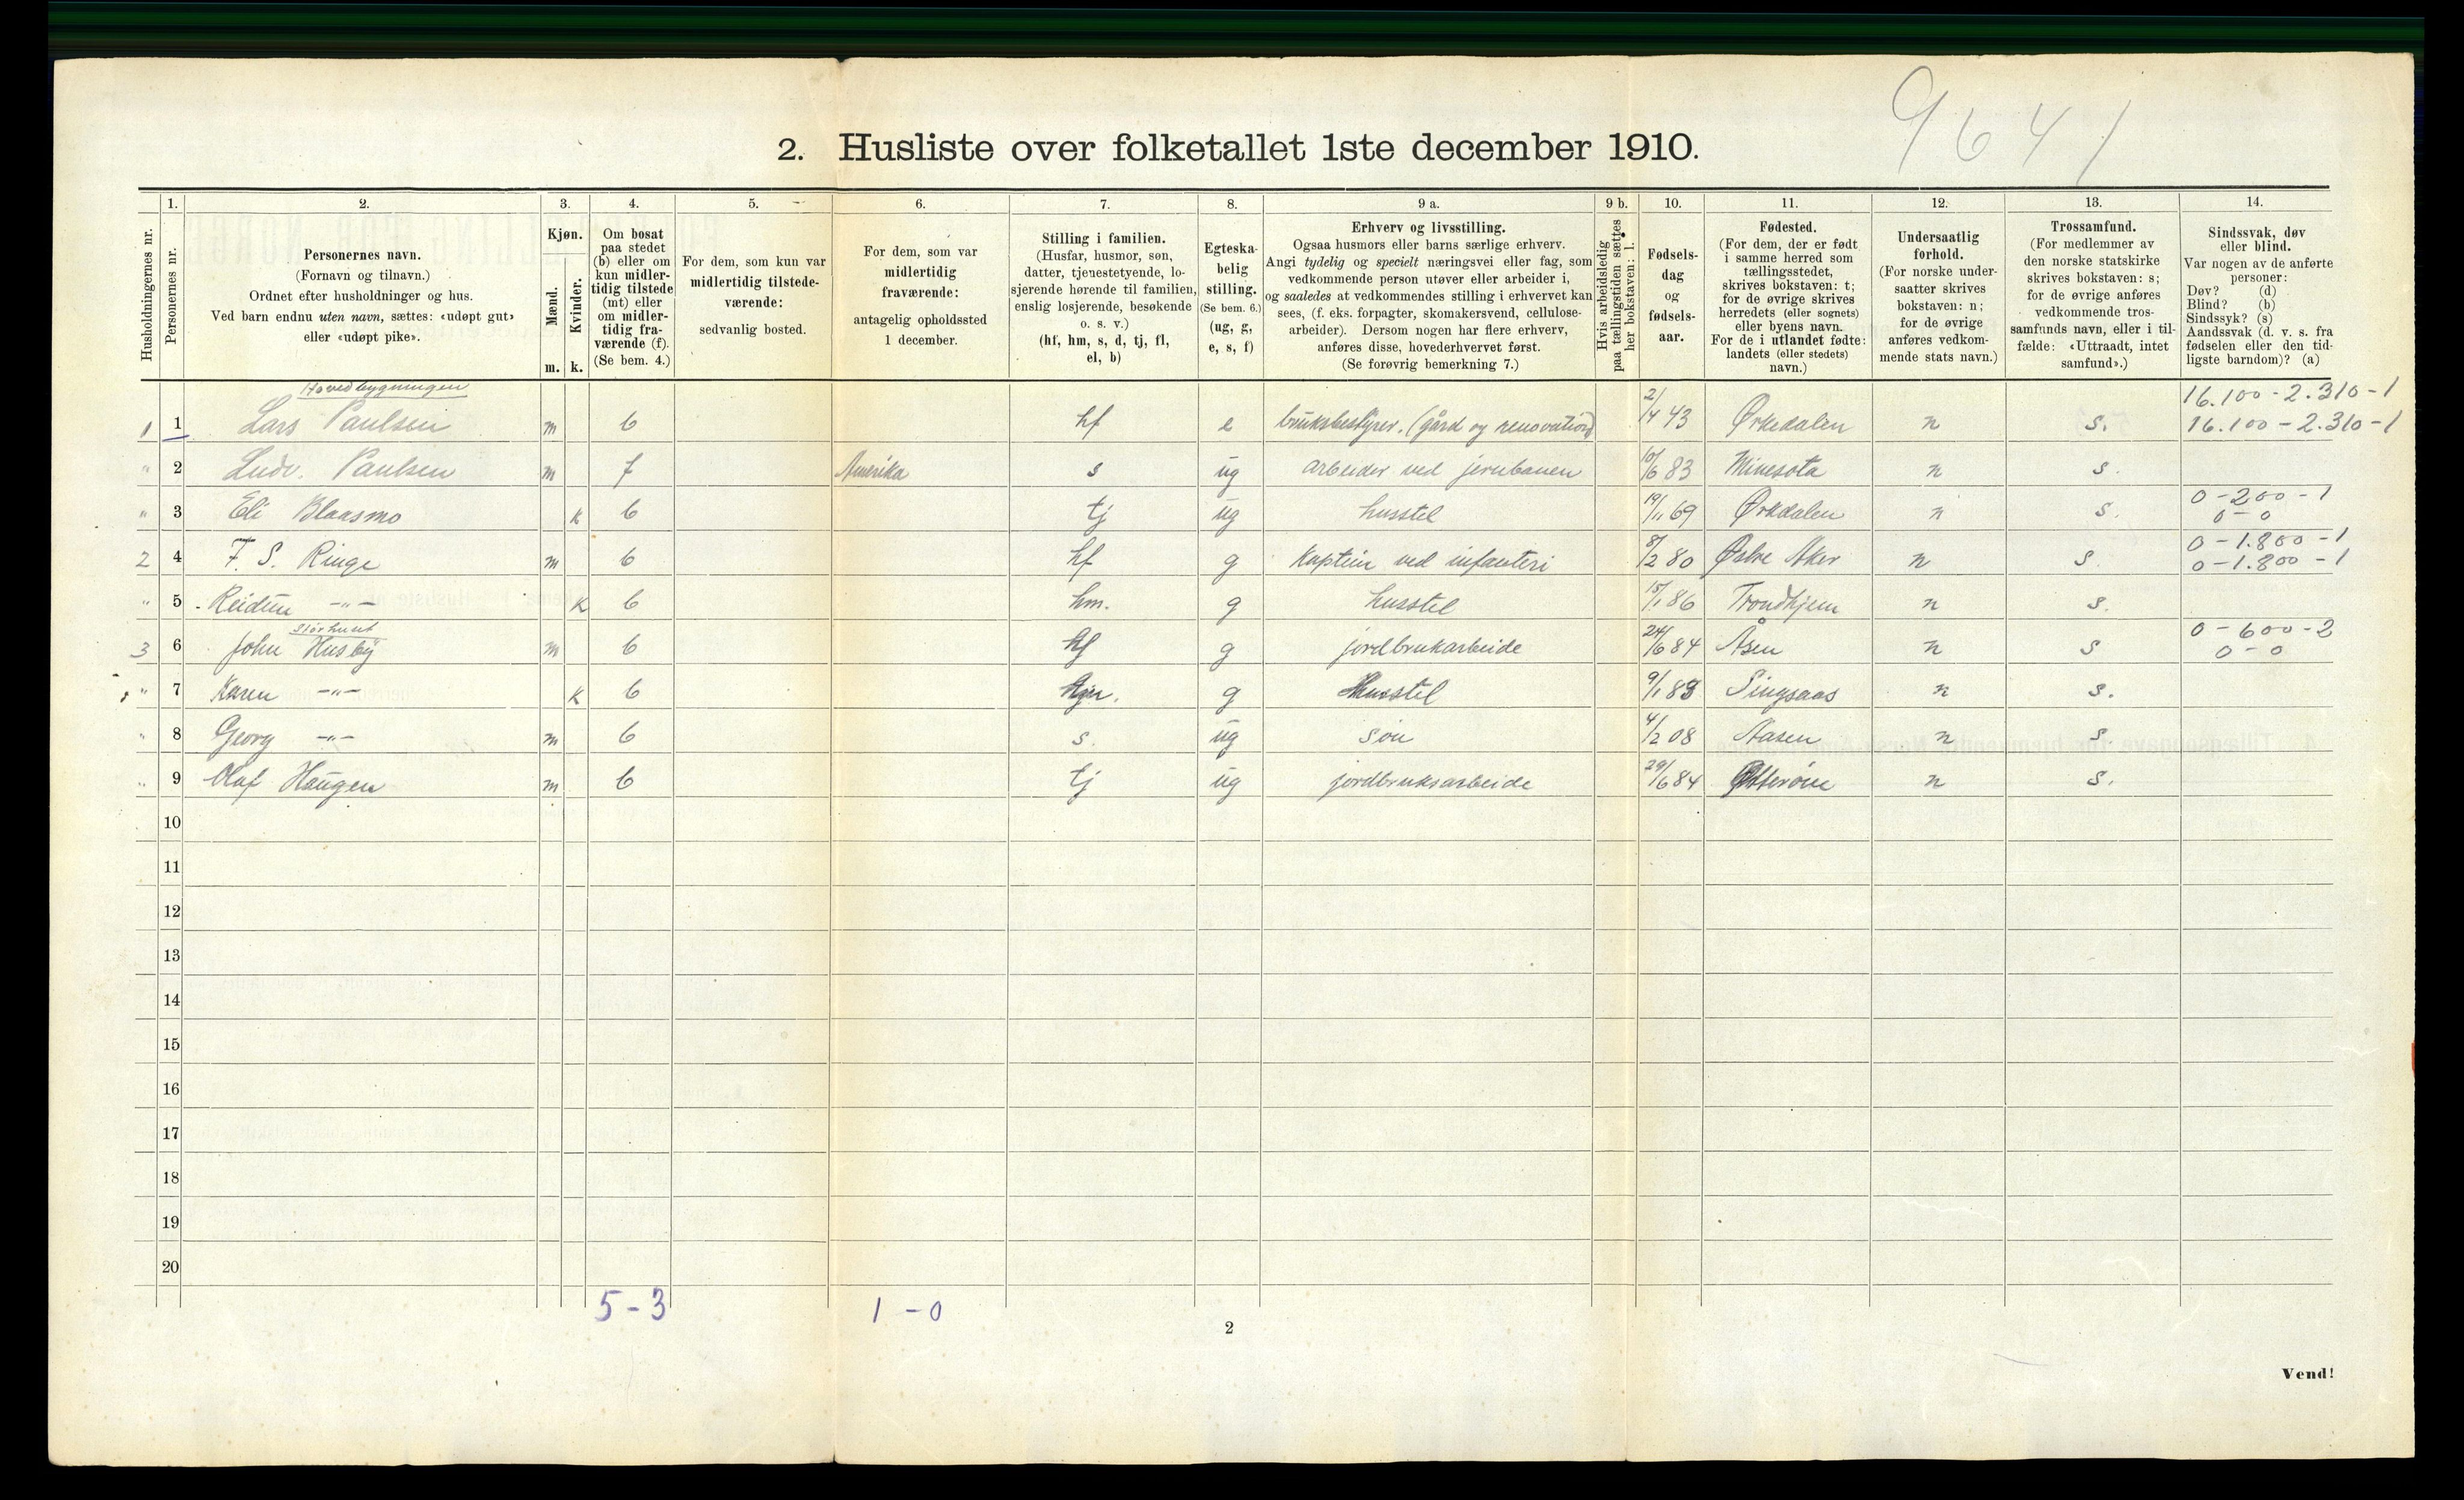 9641
2. Husliste over folketallet 1ste december 1910.
Husholdningernes nr.
1.
Personernes nr.
2.
Personernes navn.
(Fornavn og tilnavn.)
Ordnet efter husholdninger og hus.
Ved barn endnu uten navn, sættes: «udøpt gut»
eller «udøpt pike».
3.
Kjøn.
Mænd.
Kvinder.
m. k.
4.
Om bosat
paa stedet
(b) eller om
kun midler-
tidig tilstede
(mt) eller
om midler-
tidig fra-
værende (f).
(Se bem. 4.)
5.
For dem, som kun var
midlertidig tilstede-
værende:
sedvanlig bosted.
6.
For dem, som var
midlertidig
fraværende:
antagelig opholdssted
1 december.
7.
Stilling i familien.
(Husfar, husmor, søn,
datter, tjenestetyende, lo-
sjerende hørende til familien,
enslig losjerende, besøkende
o. s. v.)
(hf, hm, s, d, tj, fl,
el, b)
8.
Egteska-
belig
stilling.
(Se bem. 6.)
(ug, g,
e, s, f)
9 a.
Erhverv og livsstilling.
Ogsaa husmors eller barns særlige erhverv.
Angi tydelig og specielt næringsvei eller fag, som
vedkommende person utøver eller arbeider i,
og saaledes at vedkommendes stilling i erhvervet kan
sees, (f. eks. forpagter, skomakersvend, cellulose-
arbeider). Dersom nogen har flere erhverv,
anføres disse, hovederhvervet først.
(Se forøvrig bemerkning 7.)
9 b.
Hvis arbeidsledig
paa tællingstiden sættes
her bokstaven: l.
10.
Fødsels-
dag
og
fødsels-
aar.
11.
Fødested.
(For dem, der er født
i samme herred som
tællingsstedet,
skrives bokstaven: t;
for de øvrige skrives
herredets (eller sognets)
eller byens navn.
For de i utlandet fødte:
landets (eller stedets)
navn.)
12.
Undersaatlig
forhold.
(For norske under-
saatter skrives
bokstaven: n;
for de øvrige
anføres vedkom-
mende stats navn.)
13.
Trossamfund.
(For medlemmer av
den norske statskirke
skrives bokstaven: s;
for de øvrige anføres
vedkommende tros-
samfunds navn, eller i til-
fælde: «Uttraadt, intet
samfund».)
14.
Sindssvak, døv
eller blind.
Var nogen av de anførte
personer:
Døv? (d)
Blind? (b)
Sindssyk? (s)
Aandssvak (d. v. s. fra
fødselen eller den tid-
ligste barndom)? (a)
Hovedbygningen
16.100 - 2.310 - 1
1 1 Lars Paulsen m b hf e bruksbestyrer. (gård og renovation) 2/4 43 Ørkedalen n s. 16.100 - 2.310 - 1
" 2 Ludv. Paulsen m f Amerika s ug arbeider ved jernbanen 10/6 83 Minesota n s.
0 - 200 - 1
" 3 Eli Blaasmo k b tj ug husstel 19/11 69 Ørkdalen n s. 0 - 0
0 - 1.800 - 1
2 4 F. S. Ringe m b hf g Kaptein ved infanteri 8/2 80 Østre Aker n s 0 - 1.800 - 1
" 5 Reidun -"- k b hm. g husstel 15/1 86 Trondhjem n s.
Størhuset
0 - 600 - 2
3 6 John Husby m b hf g jordbrukarbeide 24/6 84 Åsen n s 0 - 0
" 7 Karen -"- k b g Husstel 9/1 83 Singsaas n s.
" 8 Georg -"- m b s. ug søn 4/2 08 Aasen n s.
" 9 Olaf Haugen m b tj ug jordbruksarbeide 29/6 84 n s.
10
11
12
13
14
15
16
17
18
19
20
5 - 3 1 - 0
2
Vend!